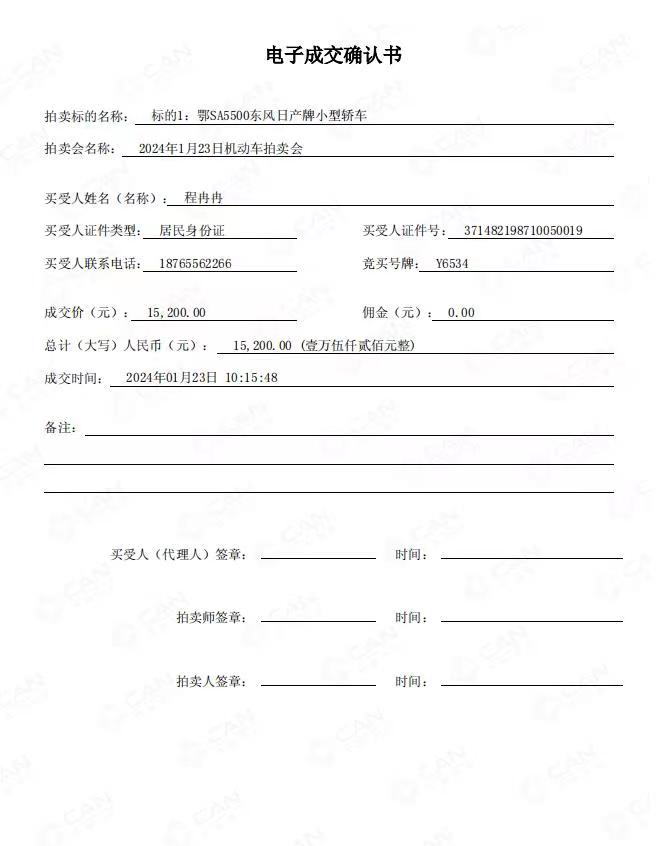 电子成交确认书
拍卖标的名称： 标的1：鄂SA5500东风日产牌小型轿车
拍卖会名称： 2024年1月23日机动车拍卖会
买受人姓名（名称）： 程冉冉
买受人证件类型： 居民身份证 买受人证件号： 371482198710050019
买受人联系电话： 18765562266 竞买号牌： Y6534
成交价（元）： 15,200.00 佣金（元）： 0.00
总计（大写）人民币（元）： 15,200.00 (壹万伍仟贰佰元整)
成交时间： 2024年01月23日 10:15:48
备注：
买受人（代理人）签章： 时间：
拍卖师签章： 时间：
拍卖人签章： 时间：
CAN